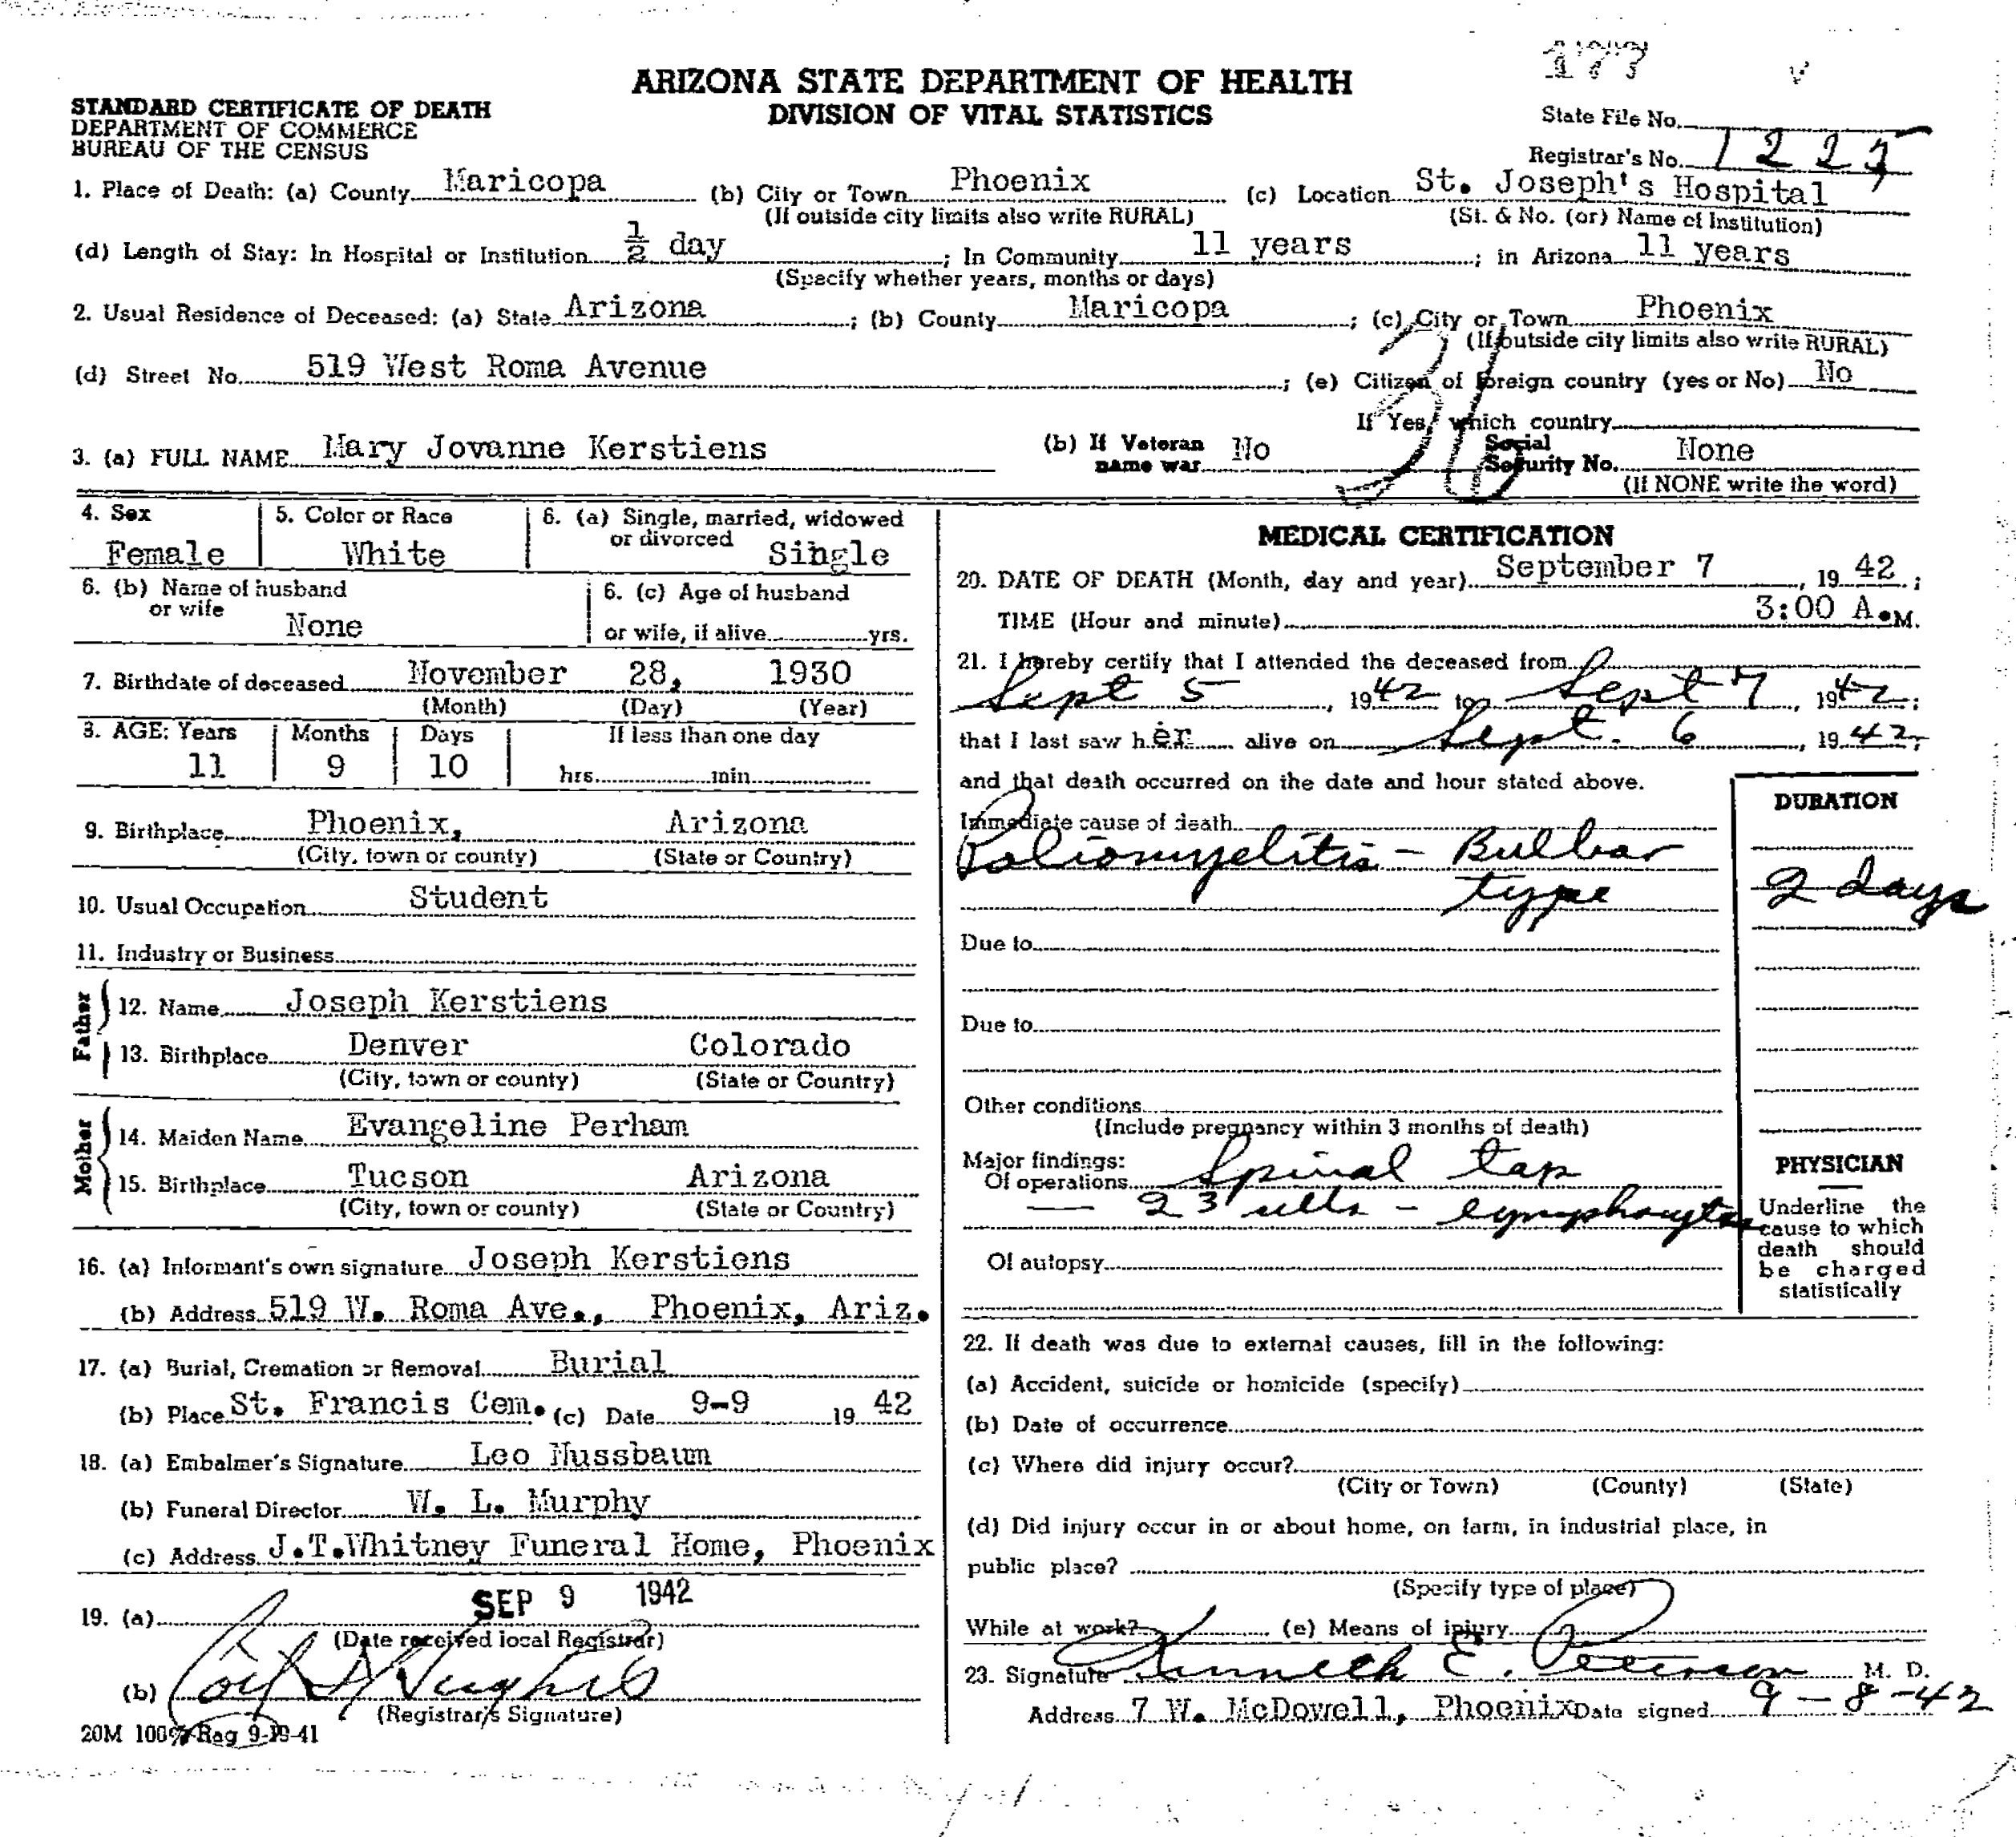 ARIZONA STATE DEPARTMENT OF HEALTH
DIVISION OF VITAL STATISTICS
STANDARD CERTIFICATE OF DEATH
DEPARTMENT OF COMMERCE
BUREAU OF THE CENSUS
State File No.
Registrar's No. 1225
1. Place of Death: (a) County Maricopa (b) City or Town Phoenix (c) Location St. Joseph's Hospital
(If outside city limits also write RURAL) (St. & No. (or) Name of Institution)
(d) Length of Stay: In Hospital or Institution ½ day ; In Community 11 years ; in Arizona 11 years
(Specify whether years, months or days)
2. Usual Residence of Deceased: (a) State Arizona ; (b) County Maricopa ; (c) City or Town Phoenix
(If outside city limits also write RURAL)
(d) Street No. 519 West Roma Avenue ; (e) Citizen of foreign country (yes or No) No
If Yes, which country
3. (a) FULL NAME Mary Jovanne Kerstiens (b) If Veteran name war No Social Security No. None
(If NONE write the word)
4. Sex Female
5. Color or Race White
6. (a) Single, married, widowed or divorced Single
6. (b) Name of husband or wife None
6. (c) Age of husband or wife, if alive yrs.
7. Birthdate of deceased November 28, 1930
(Month) (Day) (Year)
8. AGE: Years Months Days If less than one day
11 9 10 hrs. min.
9. Birthplace Phoenix, Arizona
(City, town or county) (State or Country)
10. Usual Occupation Student
11. Industry or Business
Father
12. Name Joseph Kerstiens
13. Birthplace Denver Colorado
(City, town or county) (State or Country)
Mother
14. Maiden Name Evangeline Perham
15. Birthplace Tucson Arizona
(City, town or county) (State or Country)
16. (a) Informant's own signature Joseph Kerstiens
(b) Address 519 W. Roma Ave., Phoenix, Ariz.
17. (a) Burial, Cremation or Removal Burial
(b) Place St. Francis Cem. (c) Date 9-9 19 42
18. (a) Embalmer's Signature Leo Nussbaum
(b) Funeral Director W. L. Murphy
(c) Address J.T.Whitney Funeral Home, Phoenix
19. (a) SEP 9 1942
(Date received local Registrar)
(b) Hughes
(Registrar's Signature)
20M 100% Rag 9-19-41
MEDICAL CERTIFICATION
20. DATE OF DEATH (Month, day and year) September 7 , 19 42 ;
TIME (Hour and minute) 3:00 A.M.
21. I hereby certify that I attended the deceased from
Sept 5 , 1942 to Sept 7 , 1942 ;
that I last saw her alive on Sept. 6 , 1942,
and that death occurred on the date and hour stated above.
Immediate cause of death
Poliomyelitis - Bulbar
type
DURATION
2 days
Due to
Due to
Other conditions
(Include pregnancy within 3 months of death)
Major findings:
Of operations Spinal tap
— 23 cells - lymphocytes
Of autopsy
PHYSICIAN
Underline the
cause to which
death should
be charged
statistically
22. If death was due to external causes, fill in the following:
(a) Accident, suicide or homicide (specify)
(b) Date of occurrence
(c) Where did injury occur?
(City or Town) (County) (State)
(d) Did injury occur in or about home, on farm, in industrial place, in
public place?
(Specify type of place)
While at work? (e) Means of injury
23. Signature Kenneth E. Peterson M. D.
Address 7 W. McDowell, Phoenix Date signed 9-8-42